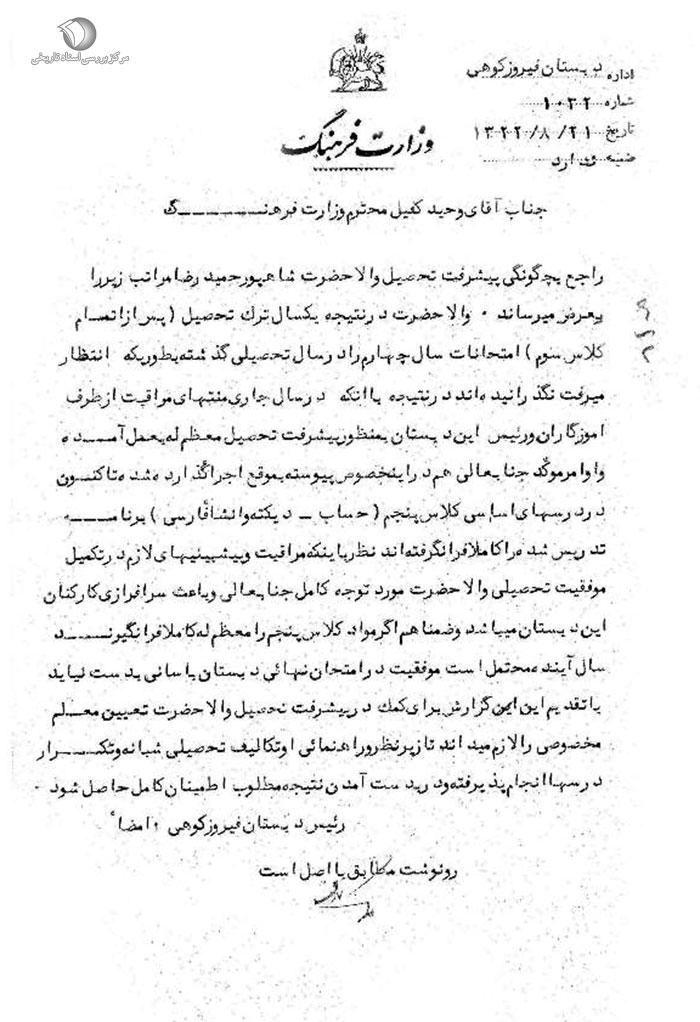 مرکز بررسی اسناد تاریخی
اداره دبستان فیروزکوهی
شماره ۱۰۳۲
تاریخ ۱۳۲۲/۸/۲۱
ضمیمه ندارد
وزارت فرهنگ
جناب آقای وحید کفیل محترم وزارت فرهنگ
راجع بچگونگی پیشرفت تحصیل والاحضرت شاهپور حمید رضا مراتب زیر را
بعرض میرساند ۰ والاحضرت در نتیجه یکسال ترک تحصیل (پس از اتمام
کلاس سوم) امتحانات سال چهارم را در سال تحصیلی گذشته بطوریکه انتظار
میرفت نگذرانیده‌اند در نتیجه با آنکه در سال جاری منتهای مراقبت از طرف
اموزگاران و رئیس این دبستان بمنظور پیشرفت تحصیل معظم‌له بعمل آمده
و اوامر موکد جنابعالی هم در اینخصوص پیوسته بموقع اجرا گذارده شده تاکنون
در درسهای اساسی کلاس پنجم (حساب ـ دیکته و انشا فارسی) برنامه
تدریس شده را کاملا فرا نگرفته‌اند نظر باینکه مراقبت و پیشبینیهای لازم در تکمیل
موفقیت تحصیلی والاحضرت مورد توجه کامل جنابعالی و باعث سرافرازی کارکنان
این دبستان میباشد و ضمنا هم اگر مواد کلاس پنجم را معظم‌له کاملا فرا نگیرند
سال آینده محتمل است موفقیت در امتحان نهائی دبستان باسانی بدست نیاید
با تقدیم این گزارش برای کمک در پیشرفت تحصیل والاحضرت تعیین معلم
مخصوصی را لازم میداند تا زیر نظر و راهنمائی او تکالیف تحصیلی شبانه و تکرار
درسها انجام پذیرفته و در بدست آمدن نتیجه مطلوب اطمینان کامل حاصل شود ۰
رئیس دبستان فیروزکوهی امضاء
رونوشت مطابق با اصل است